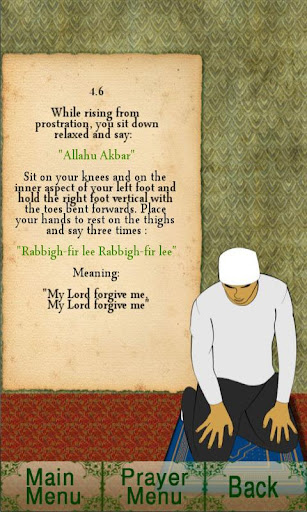 4.6
While rising from
prostration, you sit down
relaxed and say:
"Allahu Akbar"
Sit on your knees and on the
inner aspect of your left foot and
hold the right foot vertical with
the toes bent forwards. Place
your hands to rest on the thighs
and say three times :
"Rabbigh-fir lee Rabbigh-fir lee"
Meaning:
"My Lord forgive me,
My Lord forgive me"
Main
Menu
Prayer
Menu
Back